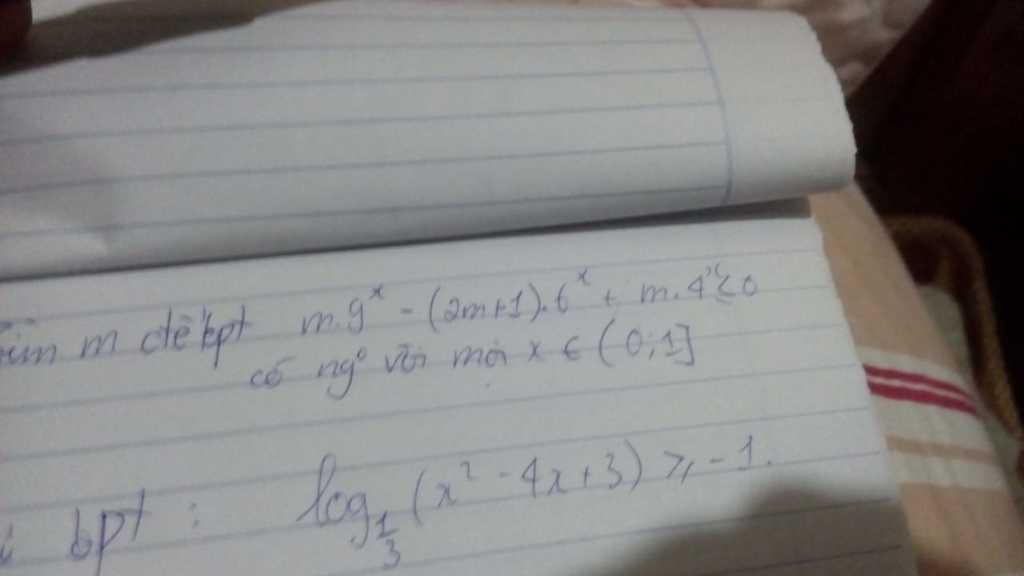 Tìm m để bpt m.9ˣ - (2m+1).6ˣ + m.4ˣ ≤ 0
có ngº với mọi x ∈ (0;1]
bpt : log_{1/3} (x² - 4x + 3) ≥ -1.